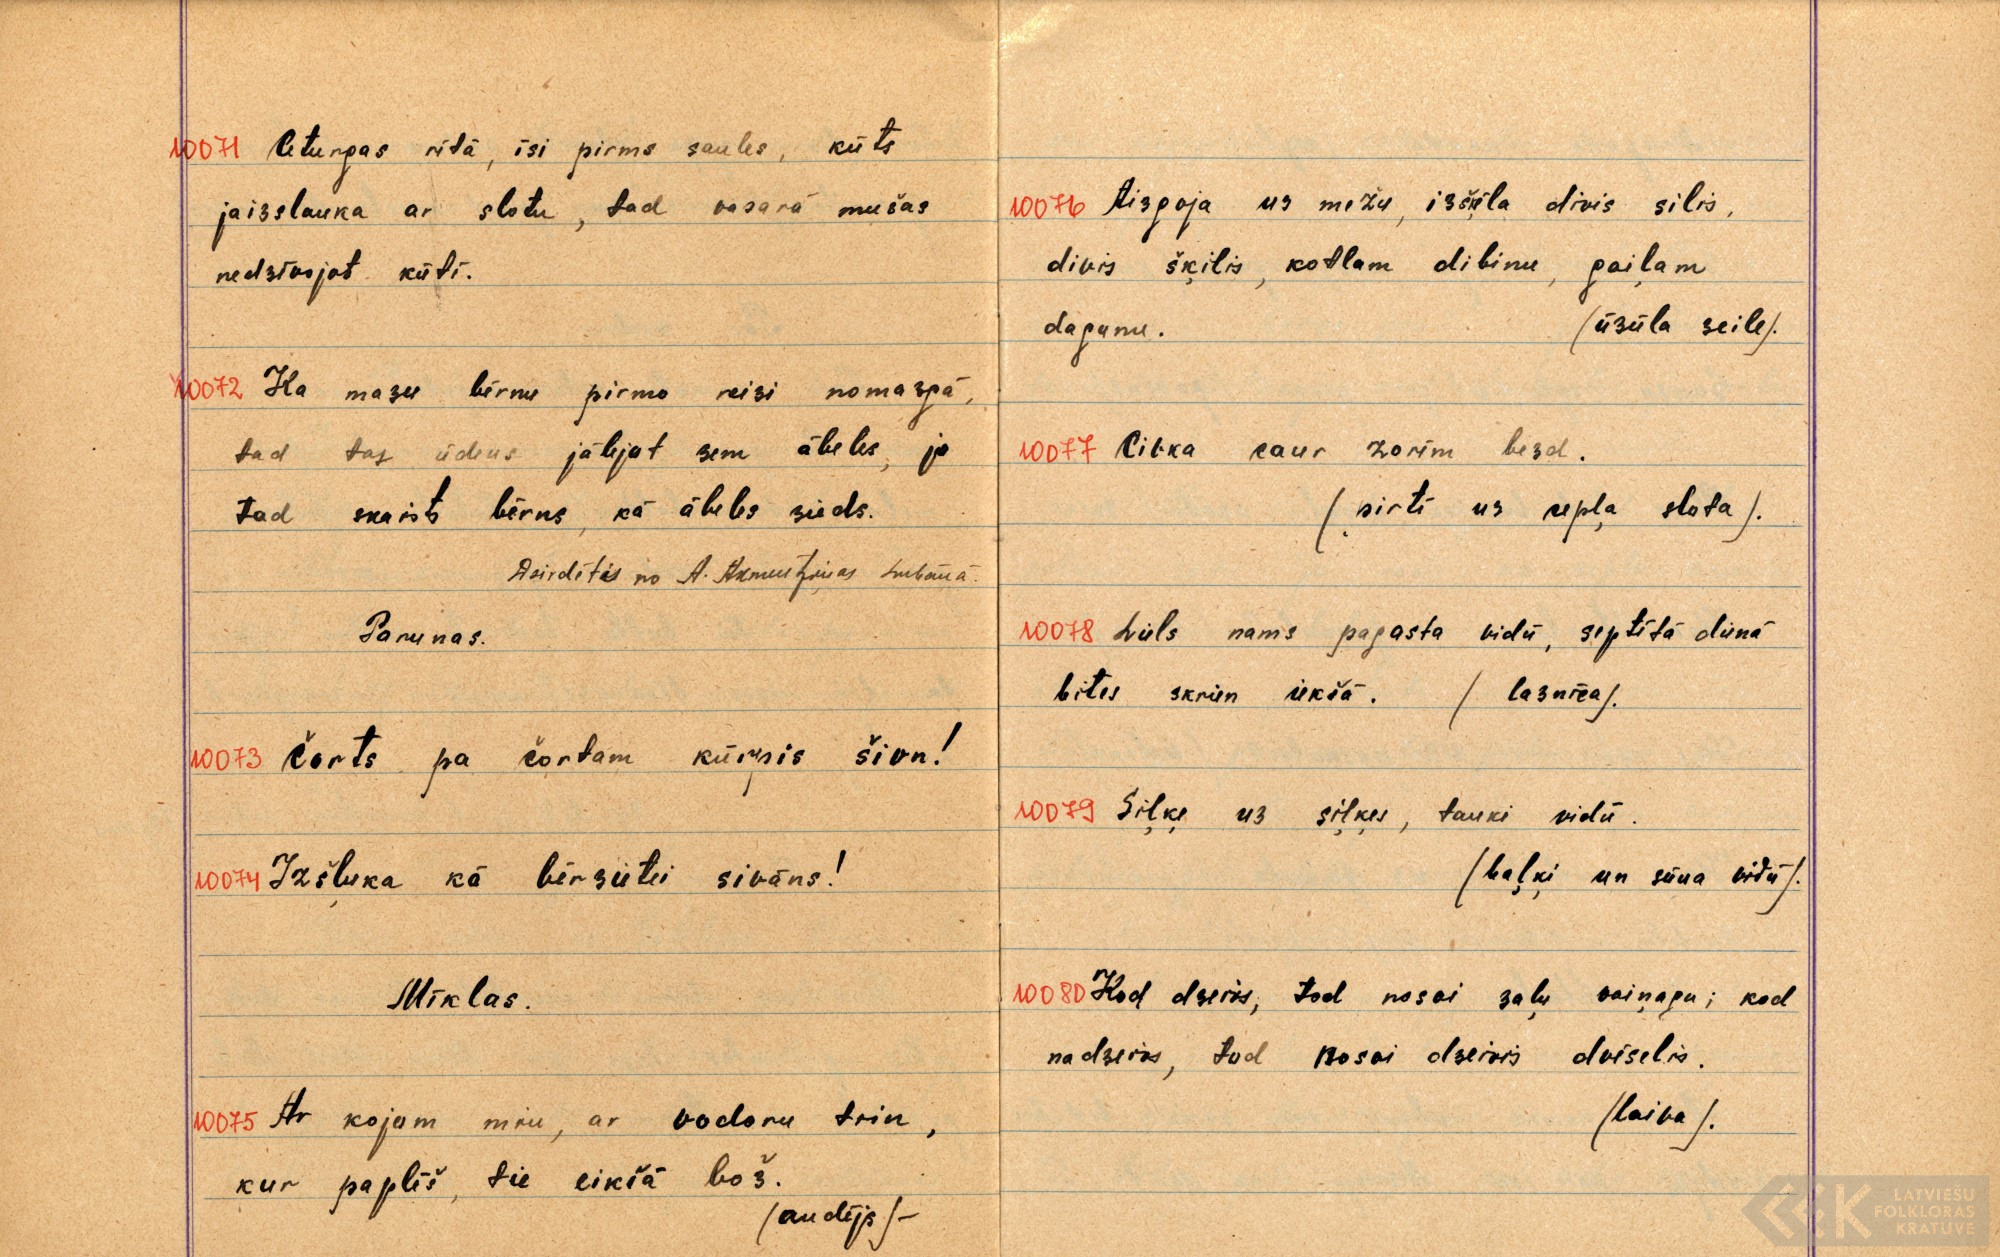 10071 Ceturgas rītā, īsi pirms saules, kūts
jaizslauka ar slotu, tad vasarā mušas
nedzīvojot kūtī.
10072 Ka mazu bērnu pirmo reizi nomazgā,
tad tas ūdens jālejot zem ābeles, jo
tad skaists bērns, kā ābeles zieds.
Dzirdētis no A. Akmentiņas Lubānā.
Parunas.
10073 Čorts pa čortam kūrpis šivn!
10074 Izšļuka kā bērzietei sivāns!
Mīklas.
10075 Ar kojom miu, ar vodoru trin,
kur paplīš, tie eikšā bož.
(audējs)-
10076 Aizgoja uz mežu, izšķīla divis silis,
divis šķilis, kotlam dibinu, gaiļam
dagunu.
(ūzūla zeile).
10077 Civka caur zorim bezd.
(pirtī uz cepļa slota).
10078 Liels nams pagasta vidū, septītā dienā
bites skrien iekšā. (laznīca).
10079 Siļķe uz siļķes, tauki vidū.
(baļķi un sūna vidū).
10080 Kod dzeivs, tod nosoi zaļu voiņagu; kod
nadzeivs, tod nosoi dzeivis dvēselis.
(laiva).
LATVIEŠU
FOLKLORAS
KRĀTUVE